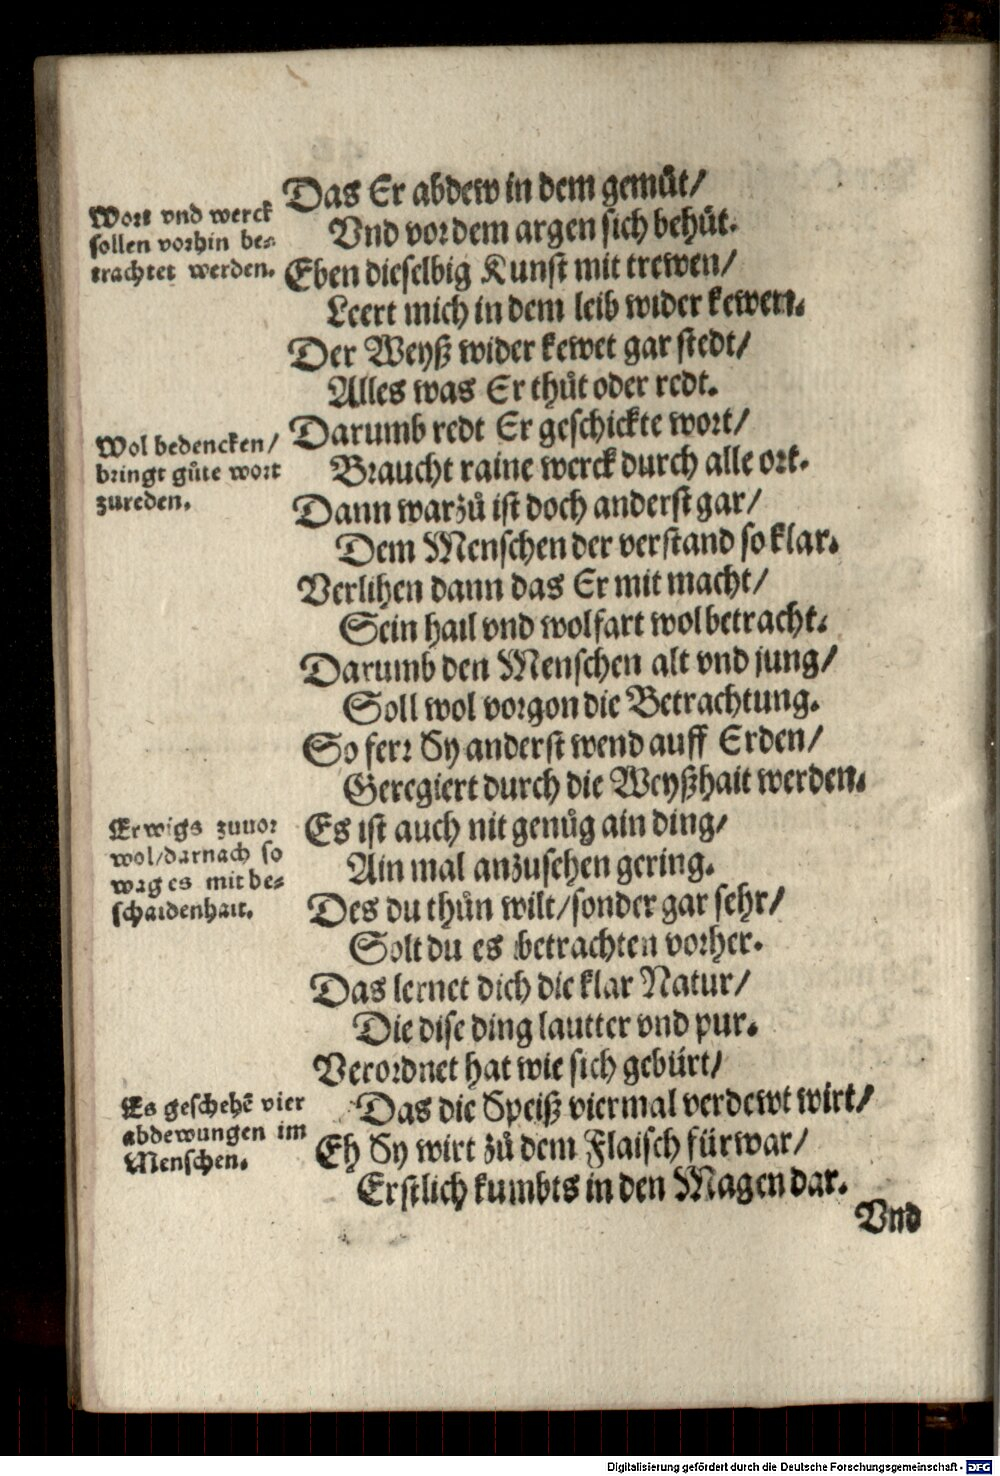 Wort vnd werck
sollen vorhin be⸗
trachtet werden.
Das Er abdew in dem gemuͤt/
Vnd vor dem argen sich behuͤt.
Eben dieselbig Kunst mit trewen/
Leert mich in dem leib wider kewen.
Der Weyß wider kewet gar stedt/
Alles was Er thuͦt oder redt.
Wol bedencken/
bringt guͦte wort
zureden.
Darumb redt Er geschickte wort/
Braucht raine werck durch alle ort.
Dann warzuͦ ist doch anderst gar/
Dem Menschen der verstand so klar.
Verlihen dann das Er mit macht/
Sein hail vnd wolfart wol betracht.
Darumb den Menschen alt vnd jung/
Soll wol vorgon die Betrachtung.
So ferr Sy anderst wend auff Erden/
Geregiert durch die Weyßhait werden.
Erwigs zuuor
wol/darnach so
wag es mit be⸗
schaidenhait.
Es ist auch nit genuͦg ain ding/
Ain mal anzusehen gering.
Des du thuͦn wilt/sonder gar sehr/
Solt du es betrachten vorher.
Das lernet dich die klar Natur/
Die dise ding lautter vnd pur.
Verordnet hat wie sich gebürt/
Es geschehē vier
abdewungen im
Menschen.
Das die Speiß viermal verdewt wirt/
Eh Sy wirt zuͦ dem Flaisch fürwar/
Erstlich kumbts in den Magen dar.
Vnd
Digitalisierung gefördert durch die Deutsche Forschungsgemeinschaft - DFG